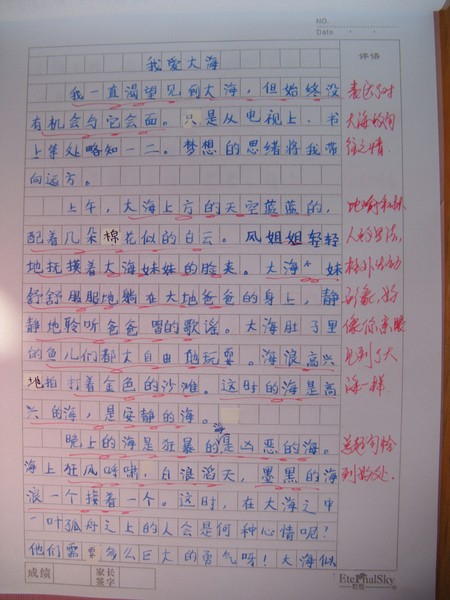 NO.
Date
评语
我爱大海
我一直渴望见到大海，但始终没
有机会与它会面。只是从电视上、书
上某处略知一二。梦想的思绪将我带
向远方。
上午，大海上方的天空蓝蓝的，
配着几朵棉花似的白云。风姐姐轻轻
地抚摸着大海妹妹的脸夹。大海妹
舒舒服服地躺在大地爸爸的身上，静
静地聆听爸爸唱的歌谣。大海肚子里
的鱼儿们都大自由地玩耍。海浪高兴
地拍打着金色的沙滩。这时的海是高
兴的海，是安静的海。
晚上的海是狂暴的海是凶恶的海。
海上狂风呼啸，白浪滔天，墨黑的海
浪一个接着一个。这时，在大海之中
一叶孤舟之上的人会是何种心情呢？
他们需要多么巨大的勇气呀！大海似
表达了对
大海的向
往之情
比喻和拟
人的写法，
格外生动
形象，好
像你亲眼
见到了大
海一样
总起句恰
到好处．
成绩
家长
签字
EternalSky